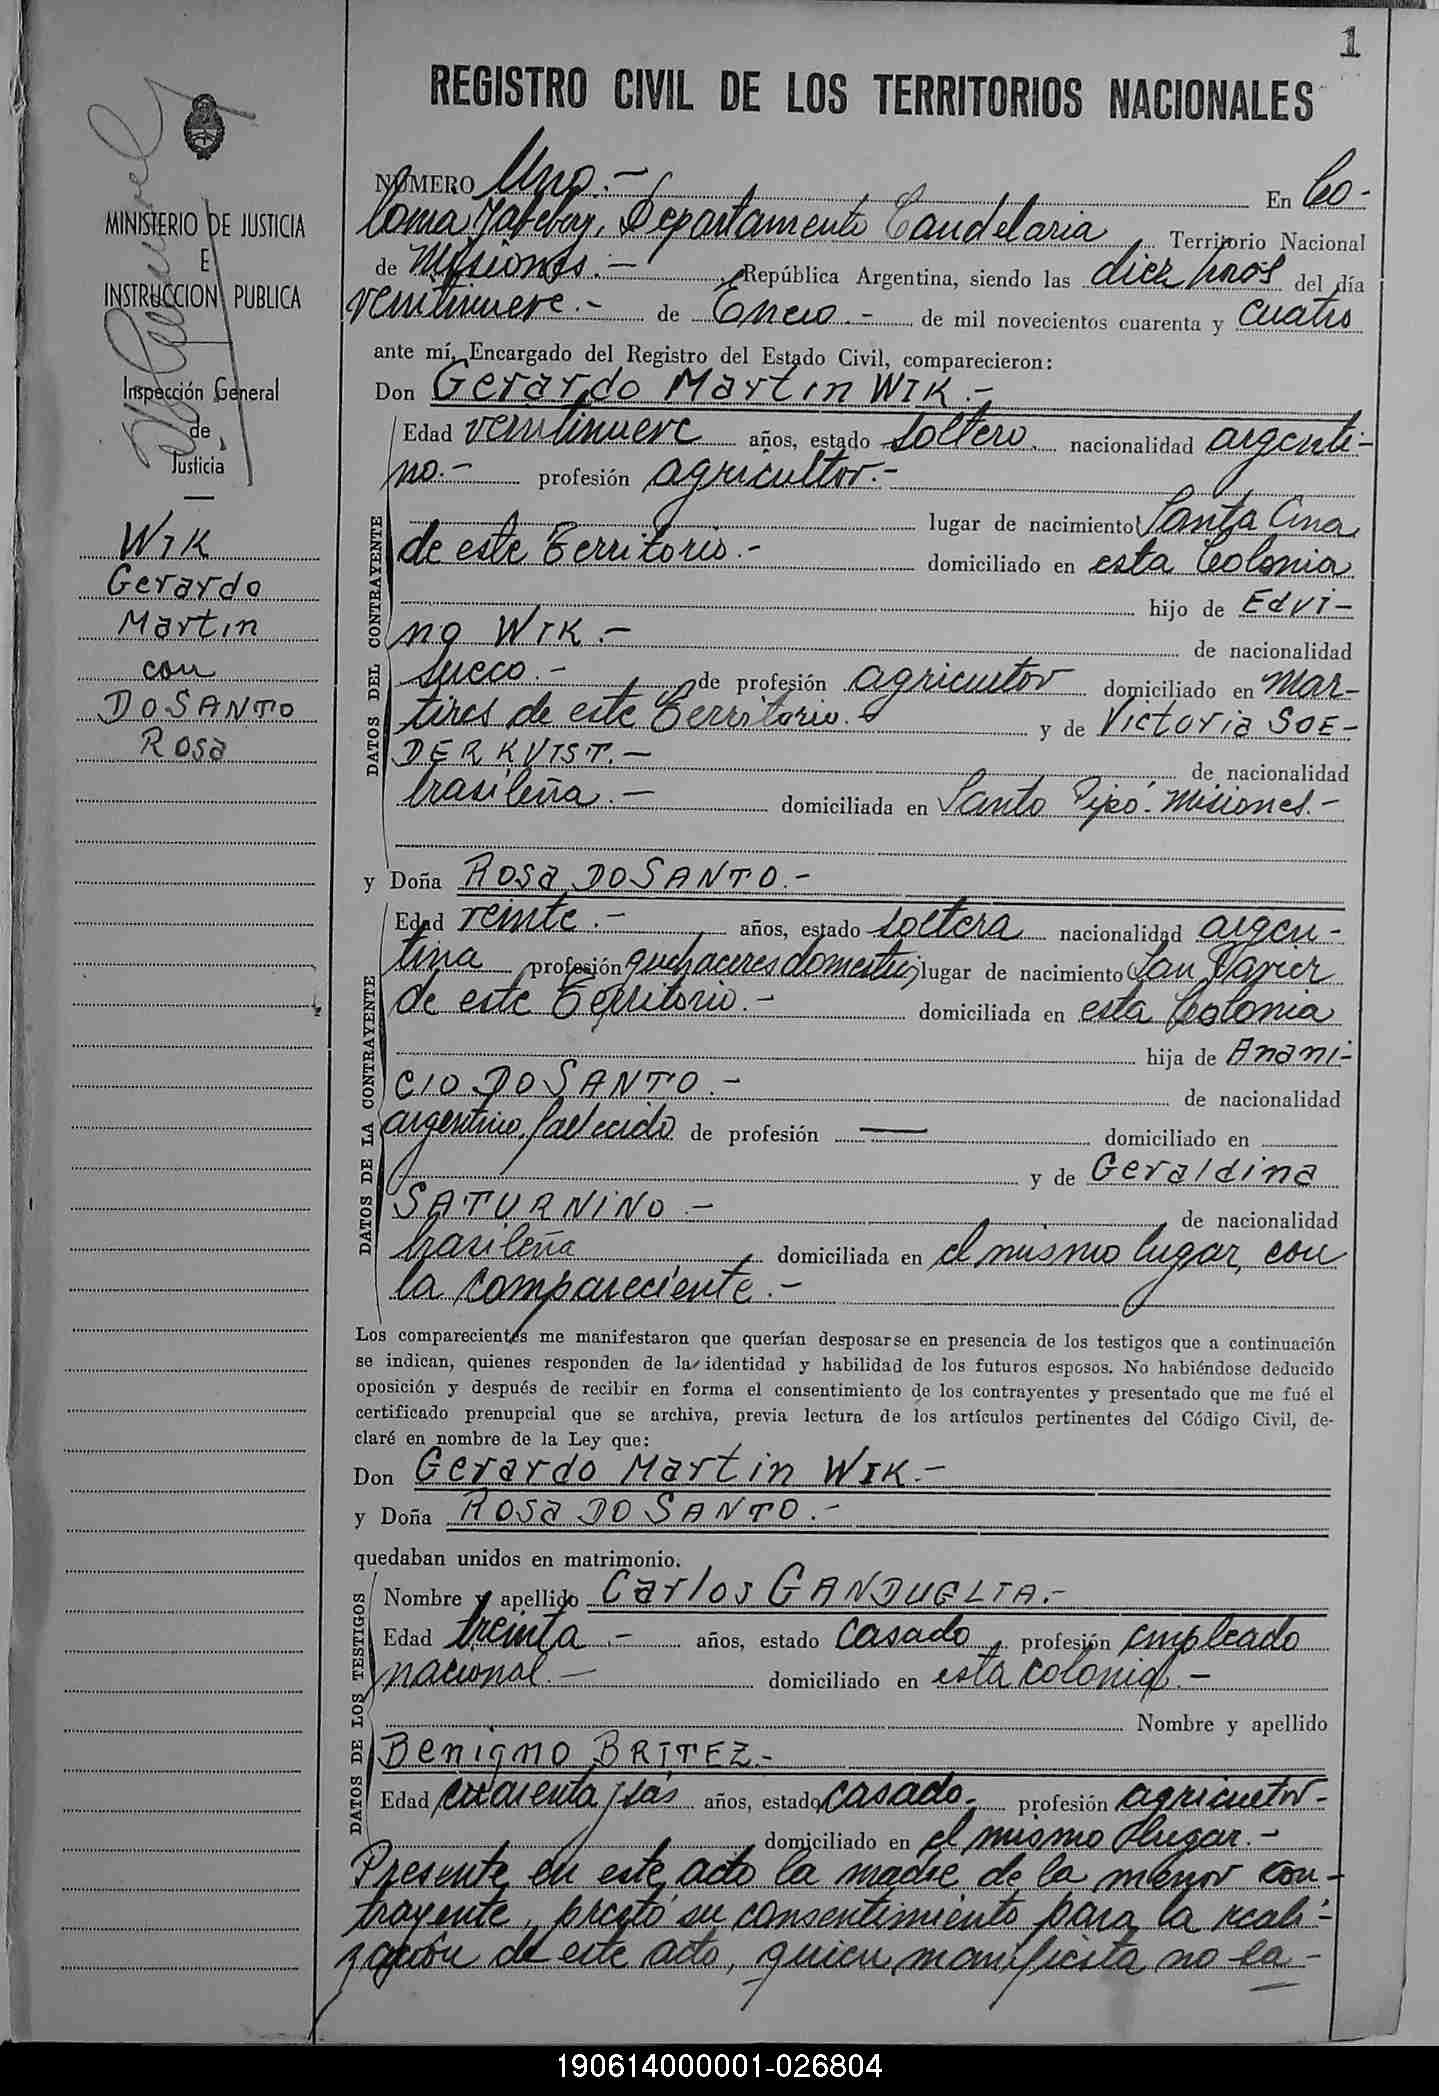 1
REGISTRO CIVIL DE LOS TERRITORIOS NACIONALES
NÚMERO Uno.- En Co-
lonia Yabebiry, Departamento Candelaria Territorio Nacional
de Misiones.- República Argentina, siendo las diez horas del día
veintinueve.- de Enero.- de mil novecientos cuarenta y cuatro
ante mí, Encargado del Registro del Estado Civil, comparecieron:
Don Gerardo Martin WIK.-
Edad veintinueve años, estado soltero, nacionalidad argenti-
no.- profesión agricultor.-
lugar de nacimiento Santa Ana
de este Territorio.- domiciliado en esta Colonia
hijo de Edvi-
no WIK.- de nacionalidad
sueco.- de profesión agricultor domiciliado en Mar-
tires de este Territorio.- y de Victoria SOE-
DERKVIST.- de nacionalidad
brasileña.- domiciliada en Santo Pipó.- Misiones.-
DATOS DEL CONTRAYENTE
y Doña Rosa DO SANTO.-
Edad veinte.- años, estado soltera nacionalidad argen-
tina profesión quehaceres domestic, lugar de nacimiento San Javier
de este Territorio.- domiciliada en esta Colonia
hija de Anani-
cio DO SANTO.- de nacionalidad
argentino, fallecido de profesión — domiciliado en
y de Geraldina
SATURNINO.- de nacionalidad
brasileña domiciliada en el mismo lugar, con
la compareciente.-
DATOS DE LA CONTRAYENTE
Los comparecientes me manifestaron que querían desposarse en presencia de los testigos que a continuación
se indican, quienes responden de la identidad y habilidad de los futuros esposos. No habiéndose deducido
oposición y después de recibir en forma el consentimiento de los contrayentes y presentado que me fué el
certificado prenupcial que se archiva, previa lectura de los artículos pertinentes del Código Civil, de-
claré en nombre de la Ley que:
Don Gerardo Martin WIK.-
y Doña Rosa DO SANTO.-
quedaban unidos en matrimonio.
Nombre y apellido Carlos GANDUGLIA.-
Edad treinta.- años, estado casado, profesión empleado
nacional.- domiciliado en esta colonia.-
Nombre y apellido
Benigno BRITEZ.-
Edad cuarenta y seis años, estado casado.- profesión agricultor-
domiciliado en el mismo lugar.-
DATOS DE LOS TESTIGOS
Presente en este acto la madre de la menor con-
trayente, prestó su consentimiento para la reali-
zación de este acto, quien manifiesta no sa-
MINISTERIO DE JUSTICIA
E
INSTRUCCION PUBLICA
Inspección General
de
Justicia
WIK
Gerardo
Martin
con
DO SANTO
Rosa
190614000001-026804